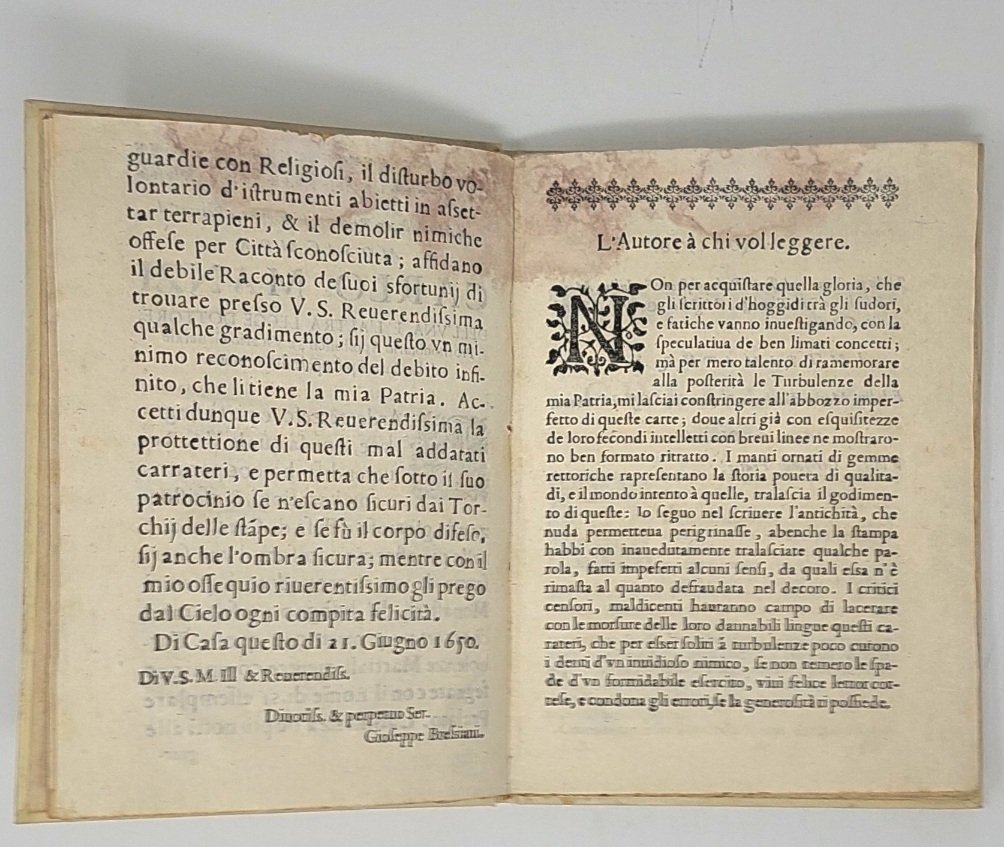 guardie con Religioſi, il diſturbo vo-
lontario d'iſtrumenti abietti in aſset-
tar terrapieni, & il demolir nimiche
offeſe per Città ſconoſciuta; affidano
il debile Raconto de ſuoi sfortunij di
trouare preſso V. S. Reuerendiſsima
qualche gradimento; ſij queſto vn mi-
nimo reconoſcimento del debito infi-
nito, che li tiene la mia Patria. Ac-
cetti dunque V. S. Reuerendiſsima la
prottettione di queſti mal addatati
carrateri, e permetta che ſotto il ſuo
patrocinio ſe n'eſcano ſicuri dai Tor-
chij delle ſtãpe; e ſe fù il corpo difeſo,
ſij anche l'ombra ſicura; mentre con il
mio oſſequio riuerentiſsimo gli prego
dal Cielo ogni compita felicità.
Di Caſa queſto di 21. Giugno 1650.
Di V. S. M. Ill & Reuerendiſs.
Diuotiſs. & perpetuo Ser.
Gioſeppe Breſsiani.
L'Autore à chi vol leggere.
NOn per acquiſtare quella gloria, che
gli ſcrittori d'hoggidi trà gli ſudori,
e fatiche vanno inueſtigando, con la
ſpeculatiua de ben limati concetti;
mà per mero talento di ramemorare
alla poſterità le Turbulenze della
mia Patria, mi laſciai conſtringere all'abbozzo imper-
fetto di queſte carte; doue altri già con eſquiſitezze
de loro fecondi intelletti con breui linee ne moſtraro-
no ben formato ritratto. I manti ornati di gemme
rettoriche rapreſentano la ſtoria pouera di qualita-
di, e il mondo intento à quelle, tralaſcia il godimen-
to di queſte: Io ſeguo nel ſcriuere l'antichità, che
nuda permetteua perigrinaſſe, abenche la ſtampa
habbi con inauedutamente tralaſciate qualche pa-
rola, fatti impefetti alcuni ſenſi, da quali eſſa n'è
rimaſta al quanto defraudata nel decoro. I critici
cenſori, maldicenti hauranno campo di lacerare
con le morſure delle loro dannabili lingue queſti ca-
rateri, che per eſser ſoliti à turbulenze poco curono
i denti d'vn inuidioſo nimico, ſe non temero le ſpa-
de d'vn formidabile eſercito, viui felice lettor cor-
teſe, e condona gli errori, ſe la generoſità ti poſſiede.